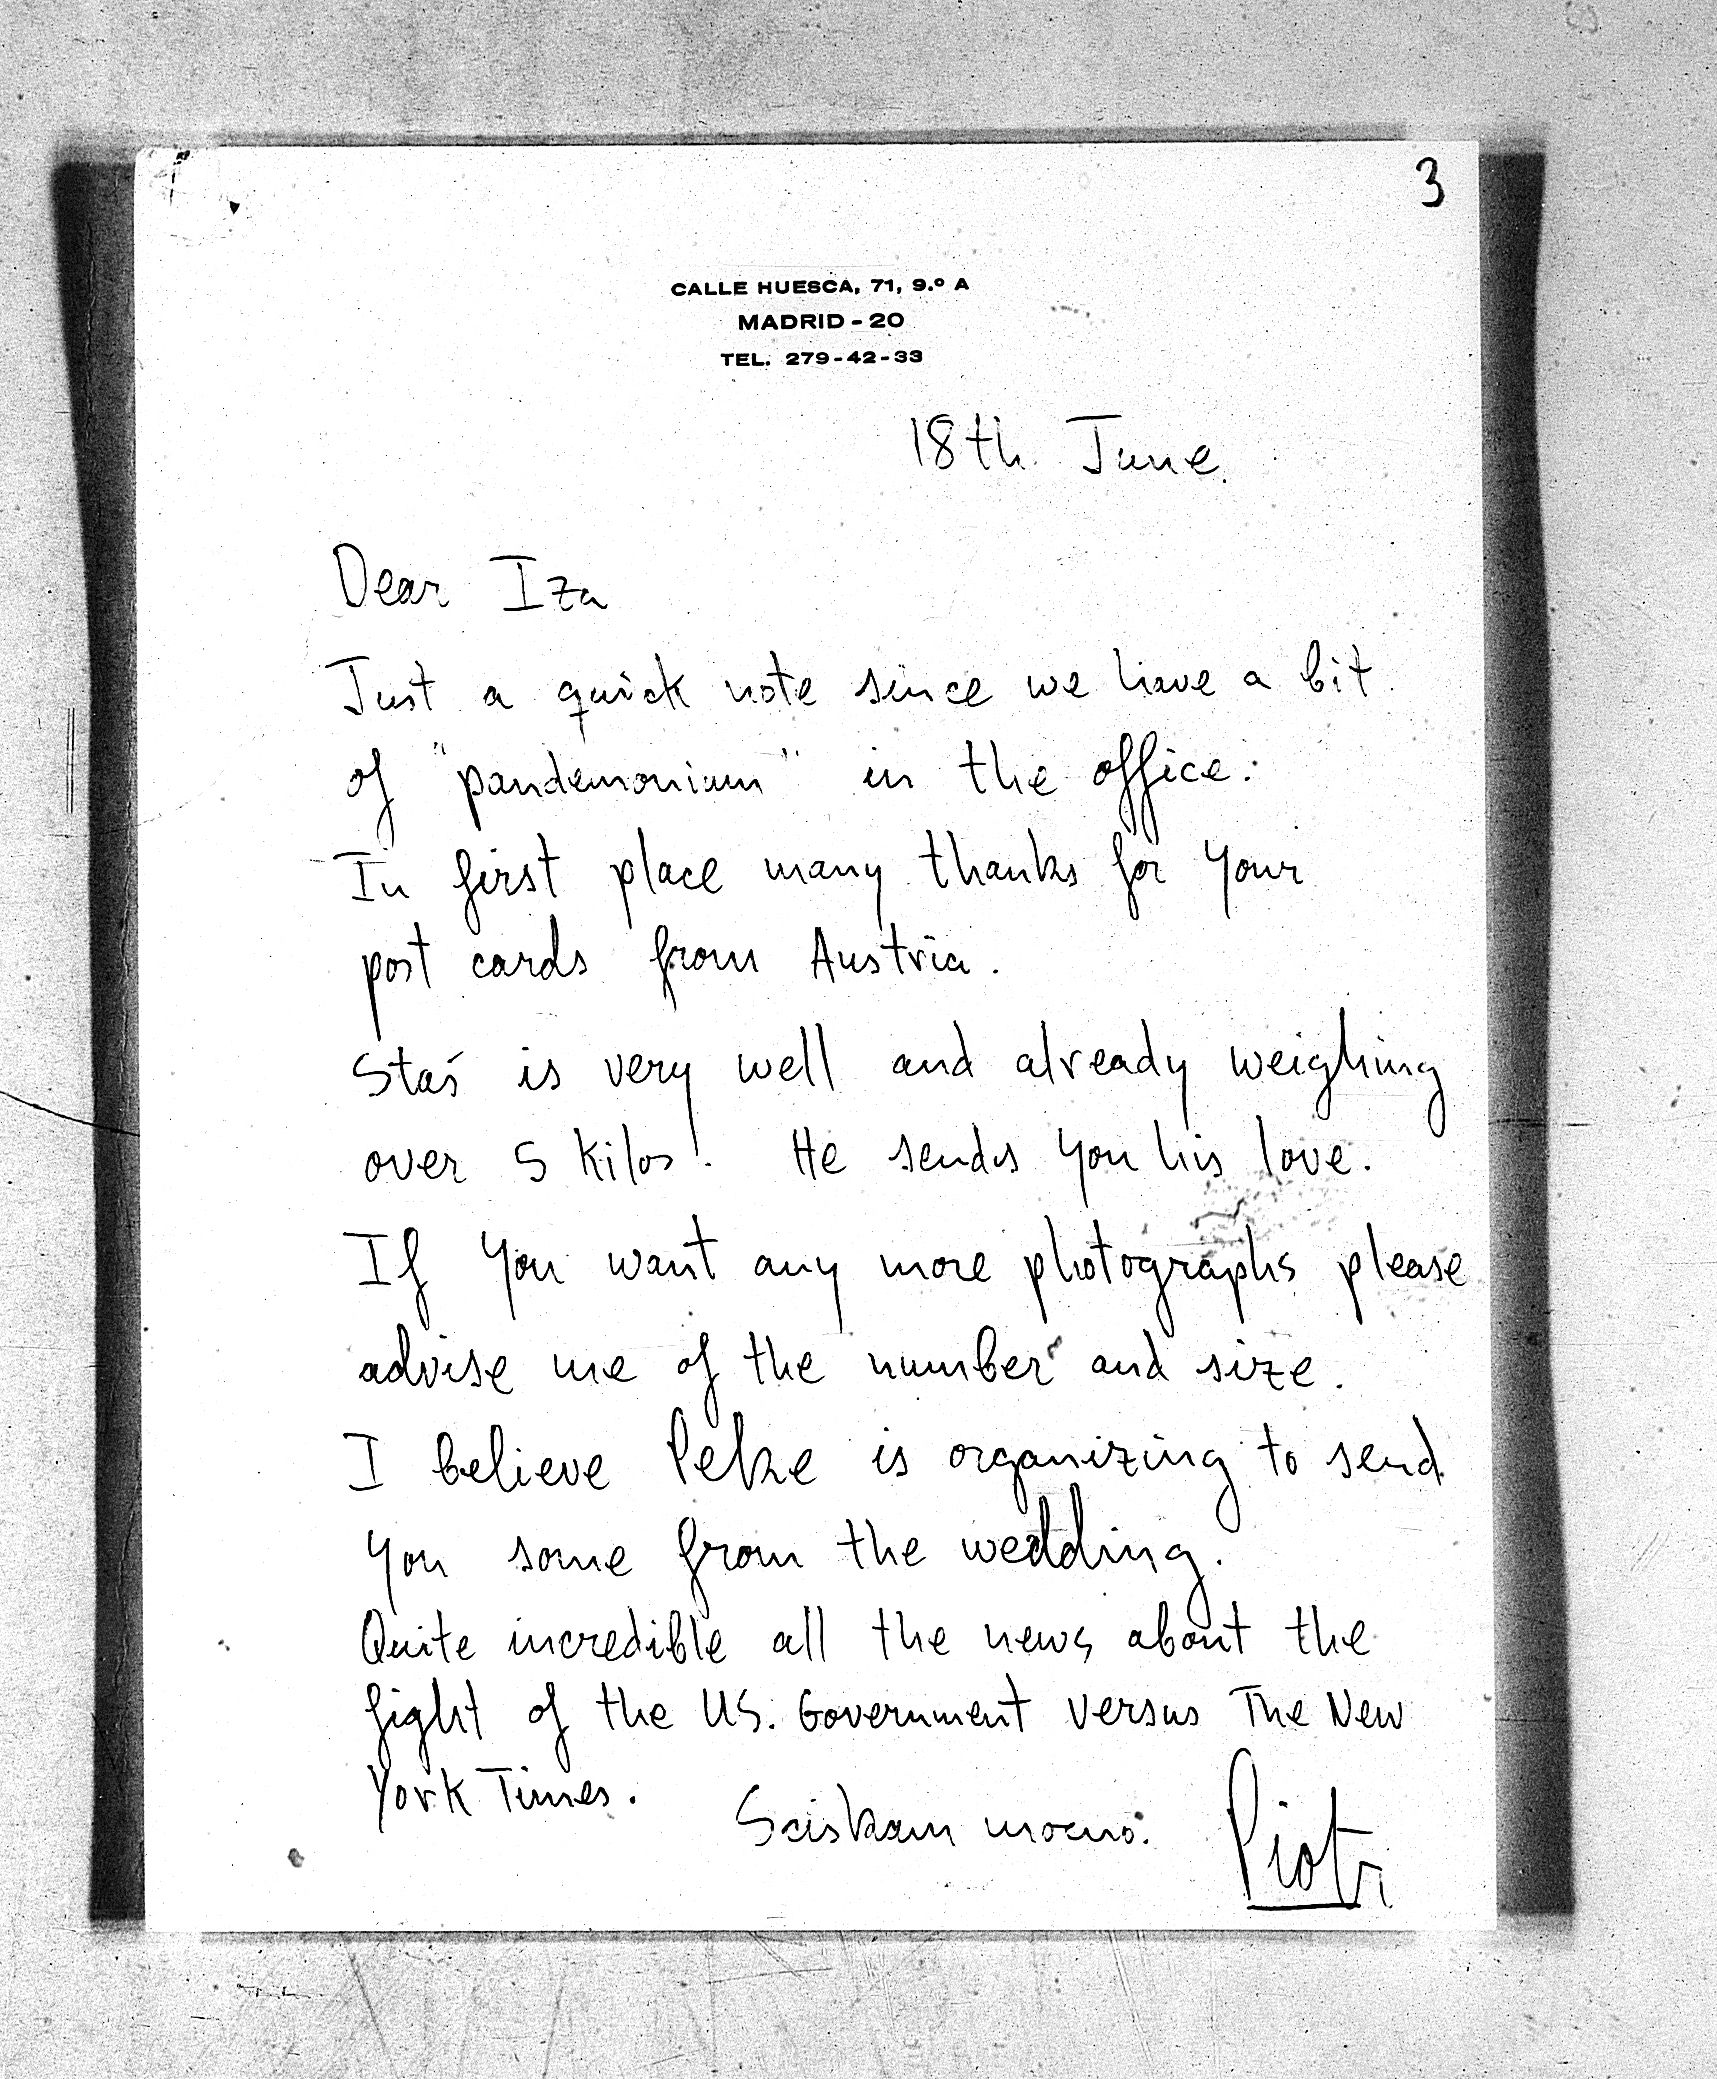 3
CALLE HUESCA, 71, 9.º A
MADRID - 20
TEL. 279-42-33
18th June.
Dear Iza
Just a quick note since we have a bit
of "pandemonium" in the office:
In first place many thanks for Your
post cards from Austria.
Staś is very well and already weighing
over 5 kilos! He sends You his love.
If You want any more photographs please
advise me of the number and size.
I believe is organizing to send
You some from the wedding.
Quite incredible all the news about the
fight of the US. Government versus The New
York Times.
Sciskam mocno.
Piotr